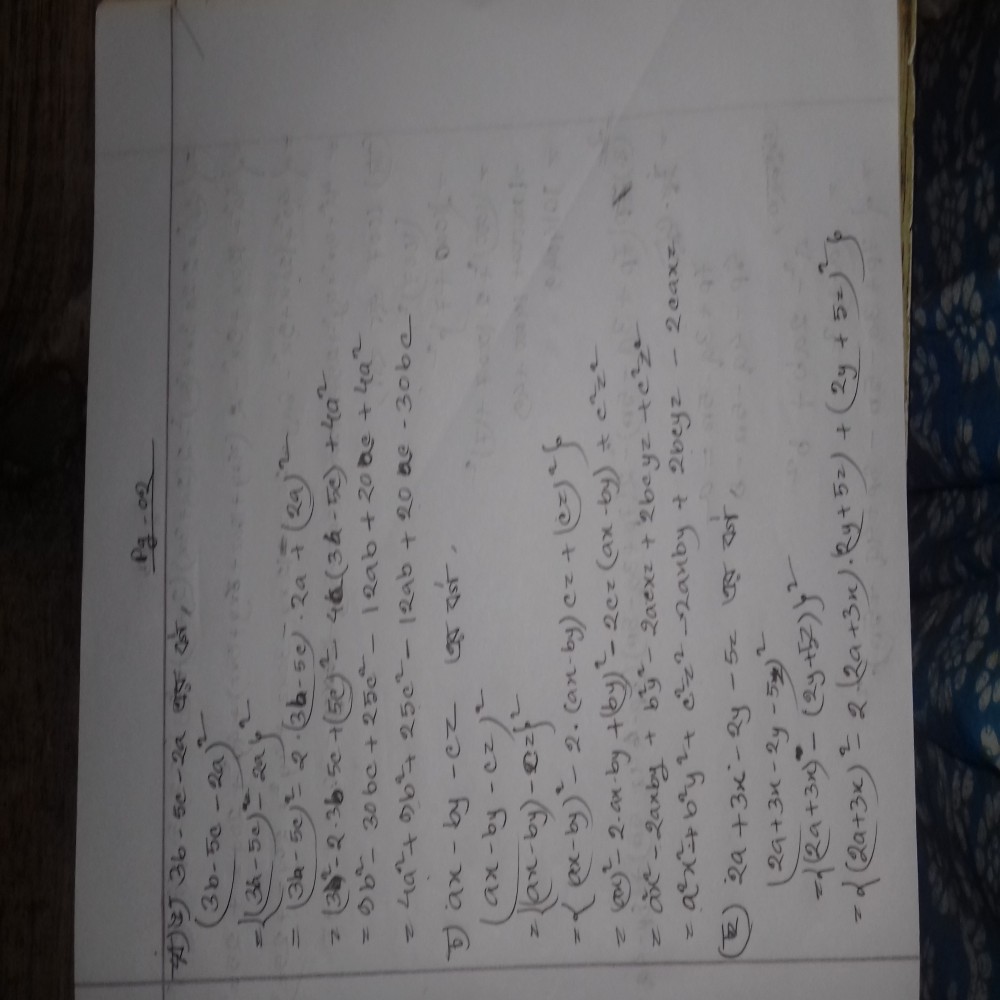 Pg-02
ঙ) 3b-5c-2a এর বর্গ,
(3b-5c-2a)²
= {(3b-5c)-2a}²
= (3b-5c)² - 2.(3b-5c).2a + (2a)²
= (3b)²-2.3b.5c+(5c)² - 4a(3b-5c)+4a²
= 9b² - 30bc + 25c² - 12ab + 20ac + 4a²
= 4a² + 9b² + 25c² - 12ab + 20ac - 30bc
চ) ax - by - cz এর বর্গ,
(ax - by - cz)²
= {(ax-by)-cz}²
= {(ax-by)² - 2.(ax-by)cz + (cz)²}
= (ax)² - 2.ax.by + (by)² - 2cz(ax-by) + c²z²
= a²x² - 2axby + b²y² - 2acxz + 2bcyz + c²z²
= a²x² + b²y² + c²z² - 2axby + 2bcyz - 2caxz
2a+3x-2y-5z এর বর্গ
(2a+3x-2y-5z)²
= {(2a+3x) - (2y+5z)}²
= {(2a+3x)² - 2.(2a+3x).(2y+5z) + (2y+5z)²}